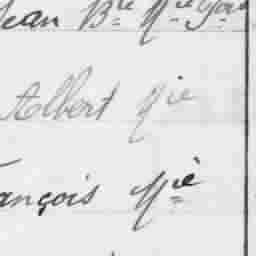 Jean Bte Mie Jos
Albert Mie
ançois Mie